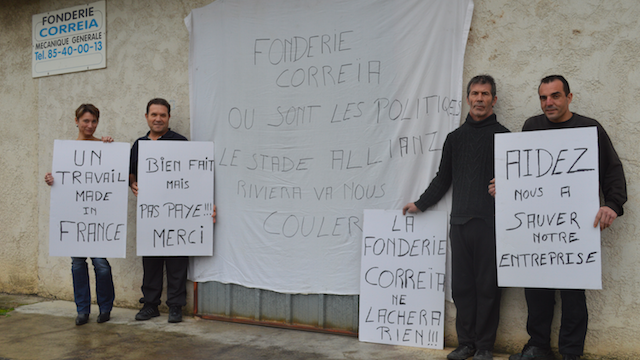 FONDERIE
CORREIA
MECANIQUE GENERALE
Tel. 85-40-00-13
UN
TRAVAIL
MADE
IN
FRANCE
BIEN FAIT
MAIS
PAS PAYE!!!
MERCI
FONDERIE
CORREIA
OU SONT LES POLITIQUES
LE STADE ALLIANZ
RIVIERA VA NOUS
COULER
LA
FONDERIE
CORREIA
NE
LACHERA
RIEN!!!
AIDEZ
NOUS A
SAUVER
NOTRE
ENTREPRISE